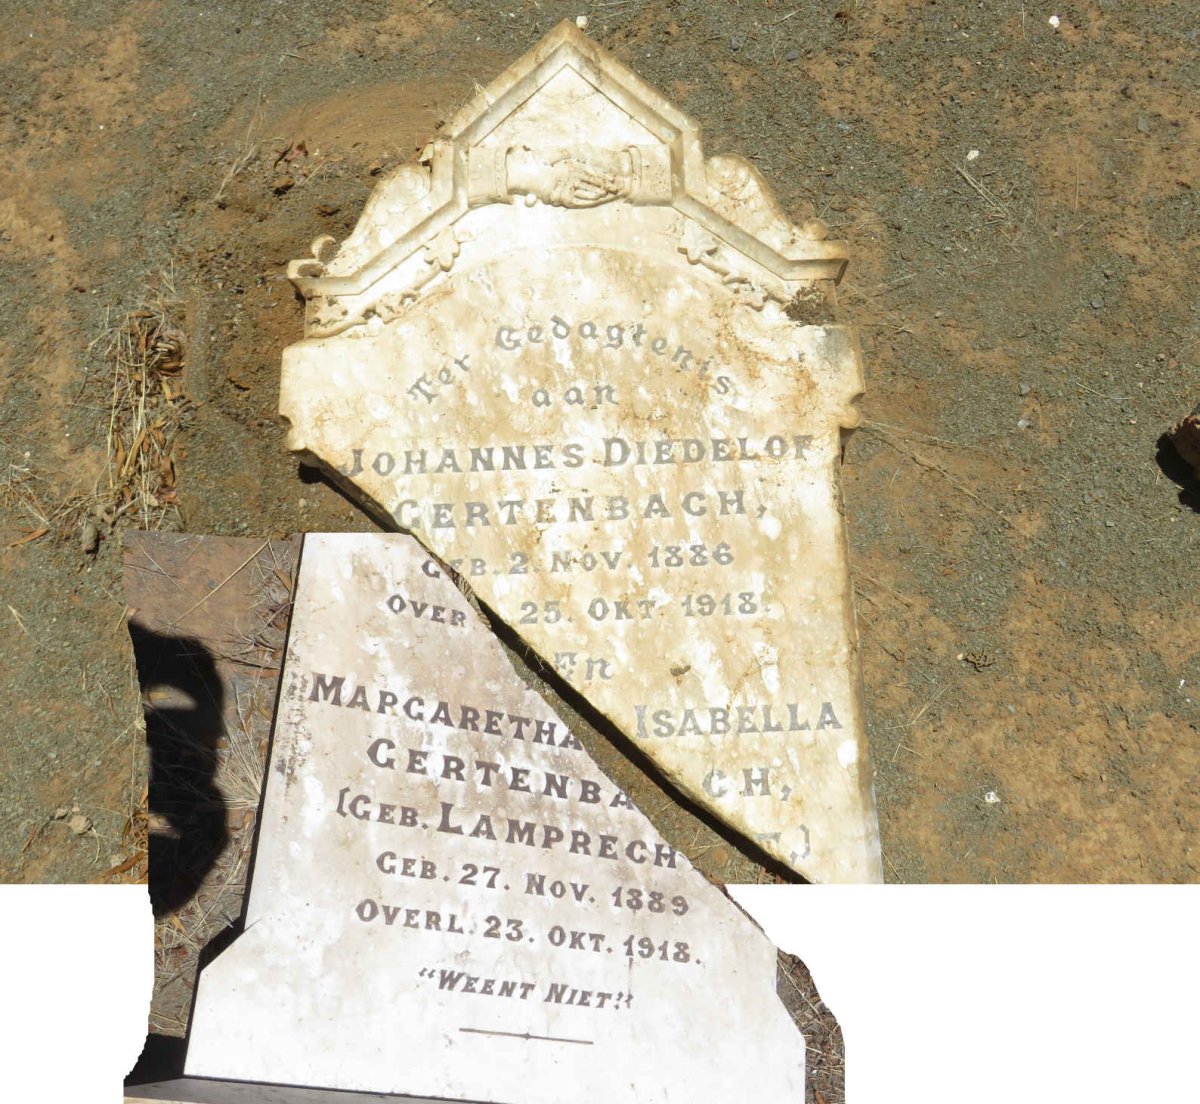 Ter Gedagtenis
aan
JOHANNES DIEDELOF
GERTENBACH,
GEB. 2. NOV. 1886
OVER 25. OKT. 1918.
En
MARGARETHA ISABELLA
GERTENBACH,
(GEB. LAMPRECHT.)
GEB. 27. NOV. 1889
OVERL. 23. OKT. 1918.
"WEENT NIET."